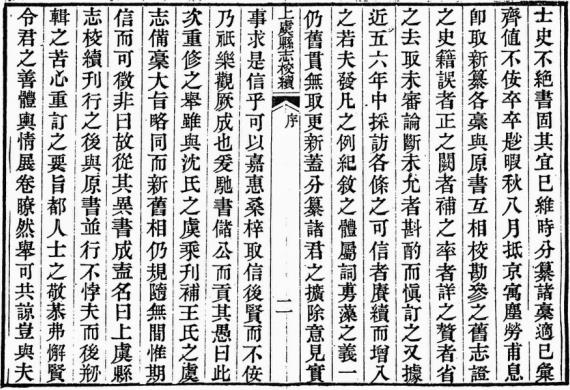 士史不絶書固其宜已維時分纂諸稾適已彙
齊值不佞卒卒尟暇秋八月抵京寓塵勞甫息
卽取新纂各稾與原書互相校勘參之舊志證
之史籍誤者正之闕者補之率者詳之贅者省
之去取未審論斷未允者斟酌而愼訂之又據
近五六年中採訪各條之可信者賡續而增入
之若夫發凡之例紀敘之體屬詞摛藻之義一
仍舊貫無取更新蓋分纂諸君之擴除意見實
上虞縣志校續
序
二
事求是信乎可以嘉惠桑梓取信後賢而不佞
乃祇樂觀厥成也爰馳書儲公而貢其愚曰此
次重修之舉雖與沈氏之虞乘刊補王氏之虞
志備稾大旨略同而新舊相仍規隨無閒惟期
信而可徵非曰故從其異書成盍名曰上虞縣
志校續刊行之後與原書並行不悖夫而後剏
輯之苦心重訂之要旨都人士之敬恭弗懈賢
令君之善體輿情展卷瞭然舉可共諒豈與夫